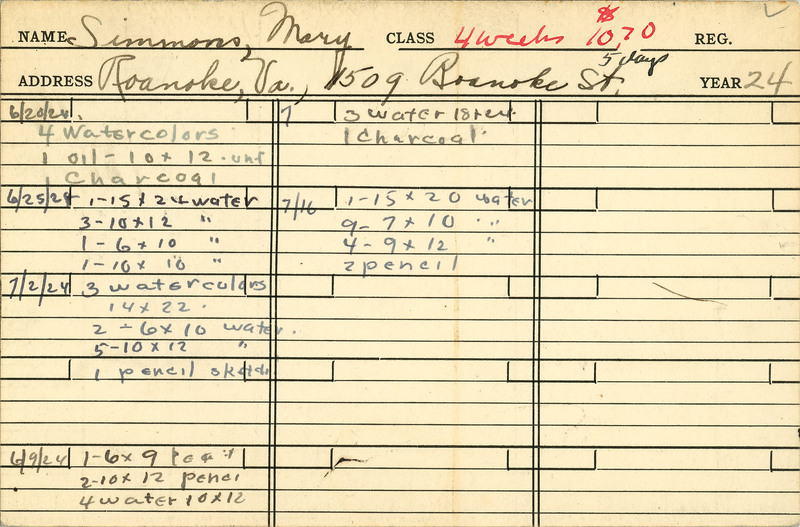 NAME Simmons, Mary CLASS 4 weeks $10.70 REG.
5 days
ADDRESS Roanoke, Va., 1509 Roanoke St. YEAR 24
6/20/24
4 Watercolors
1 oil - 10 x 12
1 Charcoal
6/25/24 1-15 x 24 water
3-10x12 "
1-6x10 "
1-10x10 "
7/2/24 3 watercolors
14 x 22.
2 - 6x10 water.
5-10x12 "
1 pencil sketch
6/9/24 1-6x9
2-10x12 pencil
4 water 10x12
7 3 water
1 Charcoal
7/16 1-15x20 water
9-7x10 "
4-9x12 "
2 pencil